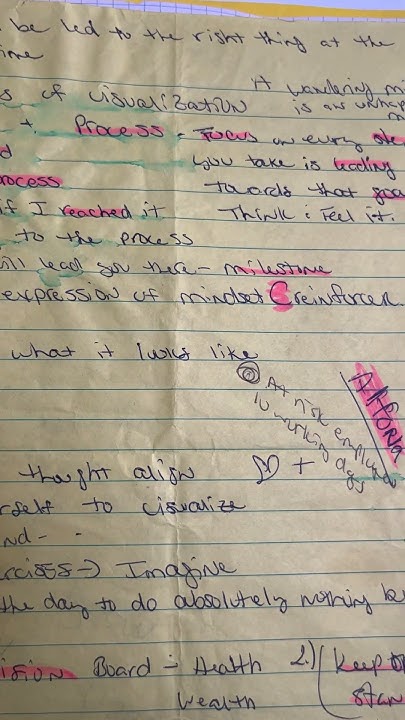 be led to the right thing at the
time
A wandering mi
s of visualization is an unhap
+ Process - Focus on every ste
d you take is leading
rocess towards that goa
if I reached it Think : Feel it.
to the process
ill lead you there - milestone
expression of mindset reinforcer
what it looks like
At risk employee
10 working days
thought align +
rself to visualize
nd - -
rcises → Imagine
the day to do absolutely nothing be
ision Board - Health 2.) Keep
Wealth Stan